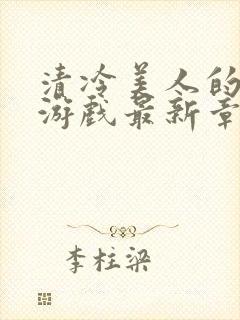 清冷美人的
游戏最新章
李柱梁